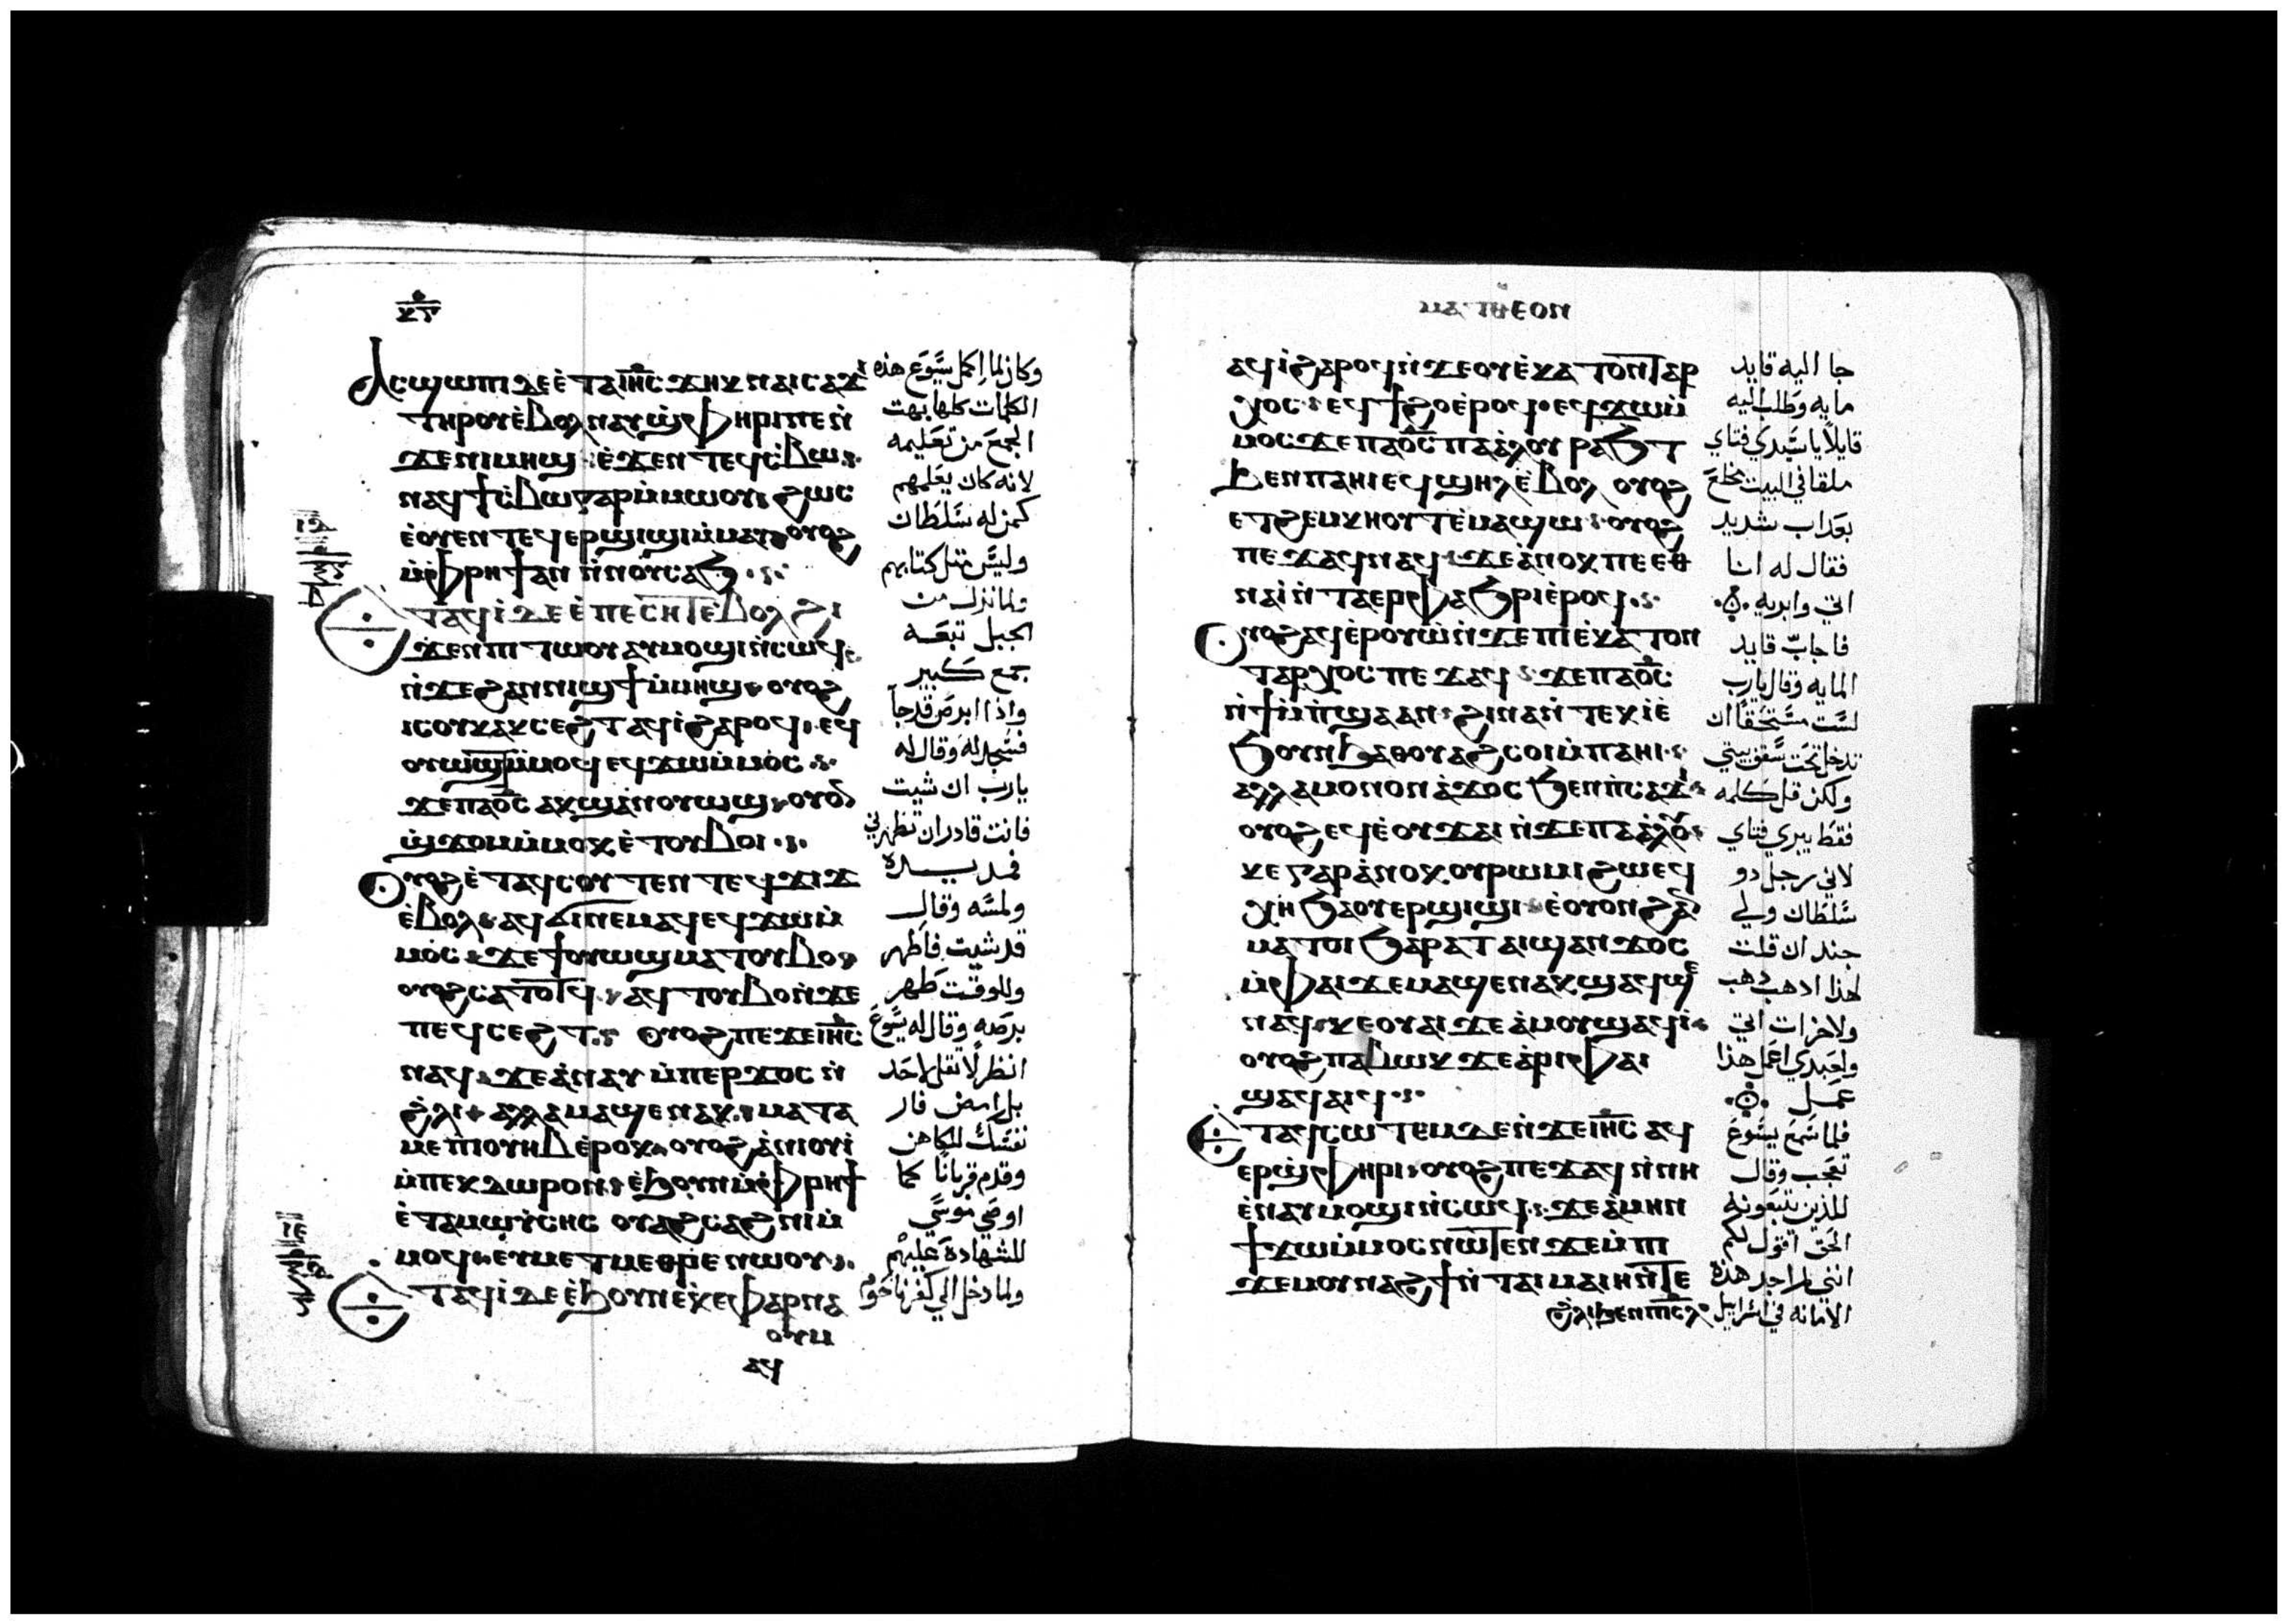 ⲕⲅ
ⲁⲥϣⲱⲡⲓ ⲇⲉ ⲉⲧⲁ ⲓⲏⲥ ϫⲏⲕ ⲛⲁⲓⲥⲁϫⲓ
ⲧⲏⲣⲟⲩ ⲉⲃⲟⲗ ⲛⲁⲩⲉⲣϣⲫⲏⲣⲓ ⲡⲉ ⲛ̀
ϫⲉ ⲛⲓⲙⲏϣ ⲉ̀ϫⲉⲛ ⲧⲉϥⲥⲃⲱ
ⲛⲁϥϯⲥⲃⲱ ⲅⲁⲣ ⲙ̀ⲙⲱⲟⲩ ϩⲱⲥ
ⲉ̀ⲟⲩⲉⲛⲧⲉϥⲉⲣϣⲓϣⲓ ⲙ̀ⲙⲁⲩ ⲟⲩⲟϩ
ⲙ̀ⲫⲣⲏϯ ⲁⲛ ⲛ̀ⲛⲟⲩⲥⲁϧ
ⲉⲧⲁϥⲓ̀ ⲇⲉ ⲉ̀ⲡⲉⲥⲏⲧ ⲉⲃⲟⲗ ϩⲓ
ϫⲉⲛ ⲡⲓⲧⲱⲟⲩ ⲁⲩⲙⲟϣⲓ ⲛ̀ⲥⲱϥ
ⲛ̀ϫⲉ ϩⲁⲛⲛⲓϣϯ ⲙ̀ⲙⲏϣ ⲟⲩⲟϩ
ⲓⲥ ⲟⲩⲕⲁⲕⲥⲉϩⲧ ⲁϥⲓ̀ ϩⲁⲣⲟϥ ⲉϥ
ⲟⲩⲱϣⲧ ⲙ̀ⲙⲟϥ ⲉϥϫⲱ ⲙ̀ⲙⲟⲥ
ϫⲉ ⲡⲁϭⲥ ⲁⲕϣⲁⲛⲟⲩⲱϣ ⲟⲩⲟ
ⲛ̀ϣϫⲟⲙ ⲙ̀ⲙⲟⲕ ⲉ̀ⲧⲟⲩⲃⲟⲓ
ⲟⲩⲟϩ ⲉ̀ⲧⲁϥⲥⲟⲩⲧⲉⲛ ⲧⲉϥϫⲓϫ
ⲉ̀ⲃⲟⲗ ⲁϥϭⲓ ⲛⲉⲙⲁϥ ⲉϥϫⲱ ⲙ̀
ⲙⲟⲥ ϫⲉ ϯⲟⲩⲱϣ ⲙⲁⲧⲟⲩⲃⲟ
ⲟⲩⲟϩ ⲥⲁⲧⲟⲧϥ ⲁϥⲧⲟⲩⲃⲟ ⲛ̀ϫⲉ
ⲡⲉϥⲥⲉϩⲧ ⲟⲩⲟϩ ⲡⲉϫⲉ ⲓⲏⲥ
ⲛⲁϥ ϫⲉ ⲁ̀ⲛⲁⲩ ⲙ̀ⲡⲉⲣϫⲟⲥ ⲛ̀
ϩ̀ⲗⲓ ⲁⲗⲗⲁ ⲙⲁϣⲉⲛⲁⲕ ⲙⲁⲧⲁ
ⲙⲉ ⲡⲓⲟⲩⲏⲃ ⲉ̀ⲣⲟⲕ ⲟⲩⲟϩ ⲁ̀ⲛⲓⲟⲩⲓ̀
ⲙ̀ⲡⲉⲕⲇⲱⲣⲟⲛ ⲉ̀ϧⲟⲩⲛ ⲙ̀ⲫⲣⲏϯ
ⲉ̀ⲧⲁ ⲙⲱⲩ̀ⲥⲏⲥ ⲟⲩⲁϩⲥⲁϩⲛⲓ ⲙ̀
ⲙⲟϥ ⲉⲩⲙⲉⲧⲙⲉⲑⲣⲉ ⲛⲱⲟⲩ
ⲉⲧⲁϥⲓ̀ ⲇⲉ ⲉ̀ϧⲟⲩⲛ ⲉ̀ⲕⲉⲫⲁⲣⲛⲁ
ⲟⲩⲙ
ⲁϥ
وكان لما اكمل يسوع هذه
الكلمات كلها بهت
الجمع من تعليمه
لانه كان يعلمهم
كمن له سلطان
وليس مثل كتابهم
ولما نزل من
الجبل تبعه
جمع كبير
واذا ابرص قد جا
فسجد له وقال له
يارب ان شيت
فانت قادر ان تطهرني
فمد يده
ولمسه وقال
قد شيت فاطهر
وللوقت طهر
برصه وقال له يسوع
انظر لا تقل لاحد
بل امض فار
نفسك للكاهن
وقدم قربانا كما
اوصى موسى
للشهادة عليهم
ولما دخل الى كفرناحوم
ⲙⲁⲧⲑⲉⲟⲛ
ⲁϥⲓ̀ ϩⲁⲣⲟϥ ⲛ̀ϫⲉ ⲟⲩⲉ̀ⲕⲁⲧⲟⲛⲧⲁⲣ
ⲭⲟⲥ ⲉϥϯϩⲟ ⲉ̀ⲣⲟϥ ⲉϥϫⲱ ⲙ̀
ⲙⲟⲥ ϫⲉ ⲡⲁϭⲥ ⲡⲁⲁ̀ⲗⲟⲩ ⲣⲁϧⲧ
ϧⲉⲛ ⲡⲁⲏⲓ ⲉϥϣⲏⲗ ⲉ̀ⲃⲟⲗ ⲟⲩⲟϩ
ⲉⲧϩⲉⲙⲕⲏⲟⲩⲧ ⲉ̀ⲙⲁϣⲱ ⲟⲩⲟϩ
ⲡⲉϫⲁϥ ⲛⲁϥ ϫⲉ ⲁ̀ⲛⲟⲕ ⲡⲉⲑ
ⲛⲁⲓ̀ ⲛ̀ⲧⲁⲉⲣⲫⲁϧⲣⲓ ⲉ̀ⲣⲟϥ
ⲟⲩⲟϩ ⲁϥⲉ̀ⲣⲟⲩⲱ̀ ⲛ̀ϫⲉ ⲡⲓⲉ̀ⲕⲁⲧⲟⲛ
ⲧⲁⲣⲭⲟⲥ ⲡⲉϫⲁϥ ϫⲉ ⲡⲁϭⲥ
ⲛ̀ϯⲙ̀ⲡϣⲁ ⲁⲛ ϩⲓⲛⲁ ⲛ̀ⲧⲉⲕⲓ̀ ⲉ̀
ϧⲟⲩⲛ ϧⲁ ⲑⲟⲩⲁϩⲥⲟⲓ ⲙ̀ⲡⲁⲏⲓ
ⲁⲗⲗⲁ ⲙⲟⲛⲟⲛ ⲁ̀ϫⲟⲥ ϧⲉⲛ ⲡⲥⲁϫⲓ
ⲟⲩⲟϩ ⲉϥⲉ̀ⲟⲩϫⲁⲓ ⲛ̀ϫⲉ ⲡⲁⲁ̀ⲗⲟⲩ
ⲕⲉ ⲅⲁⲣ ⲁ̀ⲛⲟⲕ ⲟⲩⲣⲱⲙⲓ ϩⲱ ⲉϥ
ⲭⲏ ϧⲁ ⲟⲩⲉⲣϣⲓϣⲓ ⲉ̀ⲟⲩⲟⲛ ϩⲁⲛ
ⲙⲁⲧⲟⲓ ϧⲁⲣⲁⲧ ⲁⲓϣⲁⲛϫⲟⲥ
ⲙ̀ⲫⲁⲓ ϫⲉ ⲙⲁϣⲉⲛⲁⲕ ϣⲁϥϣⲉ
ⲛⲁϥ ⲕⲉⲟⲩⲁⲓ ϫⲉ ⲁ̀ⲙⲟⲩ ϣⲁϥⲓ̀
ⲟⲩⲟϩ ⲡⲁⲃⲱⲕ ϫⲉ ⲁ̀ⲣⲓ ⲫⲁⲓ
ϣⲁϥⲁⲓϥ
ⲉⲧⲁϥⲥⲱⲧⲉⲙ ⲇⲉ ⲛ̀ϫⲉ ⲓⲏⲥ ⲁϥ
ⲉⲣϣⲫⲏⲣⲓ ⲟⲩⲟϩ ⲡⲉϫⲁϥ ⲛ̀ⲛⲏ
ⲉ̀ⲛⲁⲩⲙⲟϣⲓ ⲛ̀ⲥⲱϥ ϫⲉ ⲁ̀ⲙⲏⲛ
ϯϫⲱ ⲙ̀ⲙⲟⲥ ⲛⲱⲧⲉⲛ ϫⲉ ⲙ̀ⲡⲓ
ϫⲉⲙ ⲟⲩⲛⲁϩϯ ⲛ̀ⲧⲁⲓⲙⲁⲓⲏ ⲛ̀ⲧⲉ
ϩ̀ⲗⲓ ϧⲉⲛ ⲡⲓⲥⲗ
جا اليه قايد
مايه وطلب اليه
قايلا يا سيدي فتاي
ملقا في البيت مخلع
بعذاب شديد
فقال له انا
اتي وابريه
فاجاب قايد
المايه وقال يارب
لست مستحقا ان
تدخل تحت سقف بيتي
ولكن قل كلمه
فقط يبري فتاي
لاني رجل دو
سلطان ولي
جند ان قلت
لهذا ادهب دهب
ولاخر ات اتي
ولعبدي اعمل هذا
عمل
فلما سمع يسوع
تعجب وقال
للذين يتبعونه
الحق اقول لكم
انني لم اجد هذه
الامانه في اسراييل